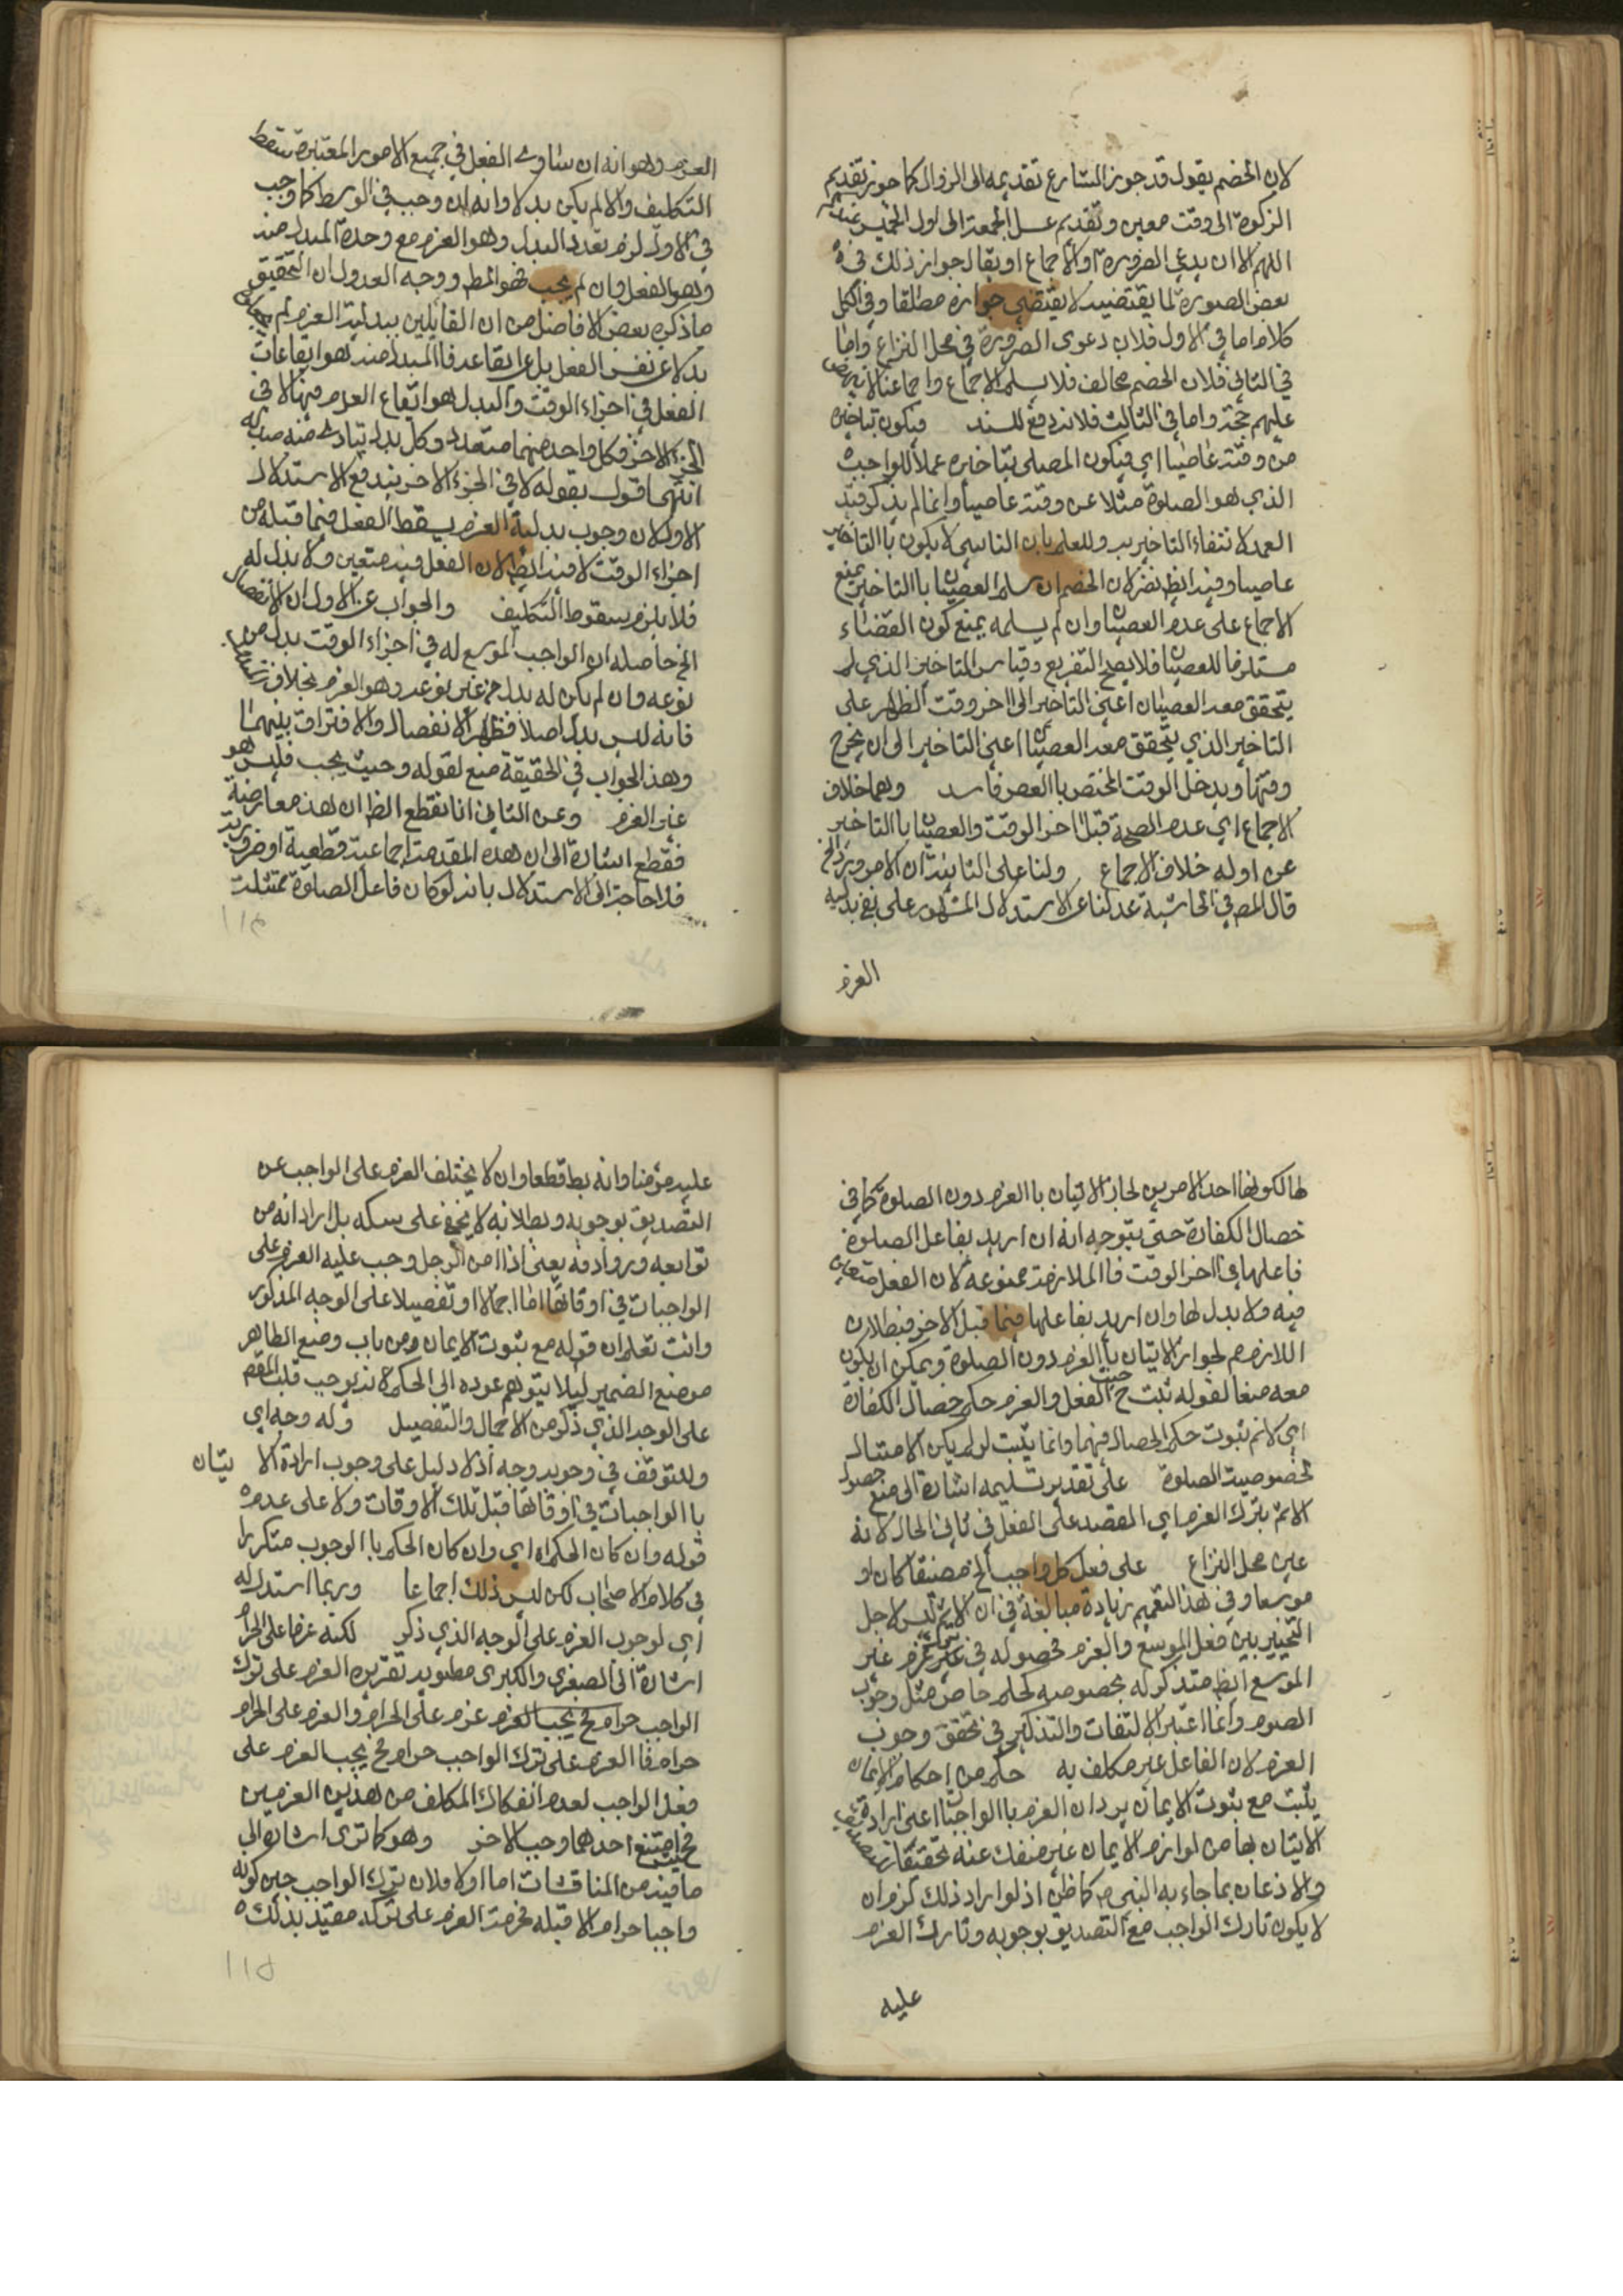 لان الخصم يقول قد جوز الشارع تقديمه الى الزوال كما جوز تقديم
الزكوة الى وقت معين وتقديم غسل الجمعة الى اول الخميس
اللهم الا ان يدعى الضرورة او الاجماع او يقال جواز ذلك في
بعض الصورة لما يقتضيه لا يقتضي جوازه مطلقا وفي الكل
كلام اما في الاول فلان دعوى الضرورة في محل النزاع واما
في الثاني فلان الخصم مخالف فلا يسلم الاجماع واجماعنا لا
عليهم حجة واما في الثالث فلانه دفع للسند فيكون بتاخيره
من وقته عاصيا اي فيكون المصلى بتاخيره عملا للواجب
الذي هو الصلوة مثلا عن وقته عاصيا وانما لم يذكر قيد
العمد لانتفاء التاخير به وللعلم بان الناسي لا يكون باالتاخير
عاصيا وفيه ايظ نظر لان الخصم ان سلم العصيان باالتاخير يمنع
الاجماع على عدم العصيان وان لم يسلمه يمنع كون القضاء
مستلزما للعصيان فلا يصح التفريع وقياس التاخير الذي لم
يتحقق معه العصيان اعنى التاخير الى اخر وقت الظهر على
التاخير الذي يتحقق معه العصيان اعنى التاخير الى ان يخرج
وقتها ويدخل الوقت المختص باالعصر فاسد وهما خلاف
الاجماع اي عدم الصحة قبل اخر الوقت والعصيان باالتاخير
عن اوله خلاف الاجماع ولنا على الثانية ان الامر ورد الخ
قال المص في الحاشية عدلنا عن الاستدلال المشهور على نفي بدلية
العزم
العزم وهو انه ان ساوى الفعل في جميع الامور المعتبرة سقط
التكليف والا لم يكن بدلا وانه ان وجب في الوسط كما وجب
في الاول لزم تعدد البدل وهو العزم مع وحدة المبدل منه
وهو الفعل وان لم يجب فهو المط ووجه العدول ان التحقيق
ما ذكره بعض الافاضل من ان القائلين ببدلية العزم لم
بدلا عن نفس الفعل بل عن ايقاعه فاالمبدل منه هو ايقاعات
الفعل في اجزاء الوقت والبدل هو ايقاع العزم فيها لا في
الجزء الاخر فكل واحد منهما متعدد وكل بدل يتادى منه مبدله
انتهى اقول بقوله لا في الجزء الاخر يندفع الاستدلال
الاول لان وجوب بدلية العزم يسقط الفعل فيما قبله من
اجزاء الوقت لا فيه ايظ لان الفعل فيه متعين ولا بدل له
فلا يلزم سقوط التكليف والجواب عن الاول ان الانفصال
الخ حاصله ان الواجب الموسع له في اجزاء الوقت بدل من
نوعه وان لم يكن له بدل من غير نوعه وهو العزم بخلاف
فانه ليس بدل اصلا فظهر الانفصال والافتراق بينهما
وهذا الجواب في الحقيقة منع لقوله وحيث يجب فليس هو
غير العزم وعن الثاني انا نقطع الظ ان هذه معارضة
فقطع اشارة الى ان هذه المقدمة اجماعية قطعية او ضرورية
فلا حاجة الى الاستدلال بانه لو كان فاعل الصلوة ممتثلت
١١٤
لها لكونها احد الامرين لجاز الاتيان باالعزم دون الصلوة كما في
خصال الكفارة حتى يتوجه انه ان اريد بفاعل الصلوة
فاعلها في اخر الوقت فاالملازمة ممنوعة لان الفعل متعين
فيه ولا بدل لها وان اريد بفاعلها فيما قبل الاخر فبطلان
اللازم مم لجواز الاتيان باالعزم دون الصلوة ويمكن ان يكون
معه منعا لقوله ثبت ح حيث الفعل والعزم حكم خصال الكفارة
اي لانم ثبوت حكم الخصال فيهما وانما يثبت لو لم يكن الامتثال
لخصوصية الصلوة على تقدير تسليمه اشارة الى منع حصول
الاثم بترك العزم اي القصد على الفعل في ثاني الحال لانه
عين محل النزاع على فعل كل واجب الخ مضيقا كان او
موسعا وفي هذا التعميم زيادة مبالغة في ان الاثم ليس لاجل
التخيير بين فعل الموسع والعزم لحصوله في العزم غير
الموسع ايظ متذكر له بخصوصه لحكم خاص مثل وجوب
الصوم وانما اعتبر الالتفات والتذكير في تحقق وجوب
العزم لان الغافل غير مكلف به حكم من احكام الايمان
يثبت مع ثبوت الايمان يرد ان العزم باالواجبات اعنى ارادة
الاتيان بها من لوازم الايمان غير منفك عنه
والاذعان بما جاء به النبي ص كما ظن اذ لو اراد ذلك لزم ان
لا يكون تارك الواجب مع التصديق بوجوبه وتارك العزم
عليه
عليه مؤمنا وانه بط قطعا وان لا يختلف العزم على الواجب عن
التصديق بوجوبه وبطلانه لا يخفى على بل اراد انه من
توابعه وروادفه يعنى اذا امن الرجل وجب عليه العزم على
الواجبات في اوقاتها اما اجمالا او تفصيلا على الوجه المذكور
وانت تعلم ان قوله مع ثبوت الايمان من باب وضع الظاهر
موضع الضمير ليلا يتوهم عوده الى الحكم لانه يوجب قلب المقص
على الوجه الذي ذكر من الاجمال والتفصيل وله وجه اي
وللتوقف في وجوبه وجه اذ لا دليل على وجوب ارادة الا تيان
باالواجبات في اوقاتها قبل تلك الاوقات ولا على عدمه
قوله وان كان الحكم اه اي وان كان الحكم باالوجوب متكررا
في كلام الاصحاب لكن ليس ذلك اجماعا وربما استدل له
اي لوجوب العزم على الوجه الذي ذكر لكنه عزما على الحرام
اشارة الى الصغرى والكبرى مطوية تقريره العزم على ترك
الواجب حرام فح يجب العزم عزم على الحرام والعزم على الحرام
حرام فاالعزم على ترك الواجب حرام فح يجب العزم على
فعل الواجب لعدم انفكاك المكلف من هذين العزمين
فح حيث امتنع احدهما وجب الاخر وهو كما ترى اشارة الى
ما فيه من المناقشات اما اولا فلان ترك الواجب حين كونه
واجبا حرام لا قبله فحرمة العزم على تركه مقيد بذلك
١١٥